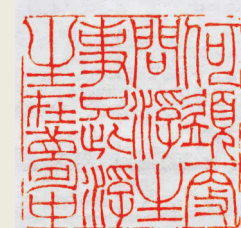 何須更
問浮生
事只此浮
生在夢中